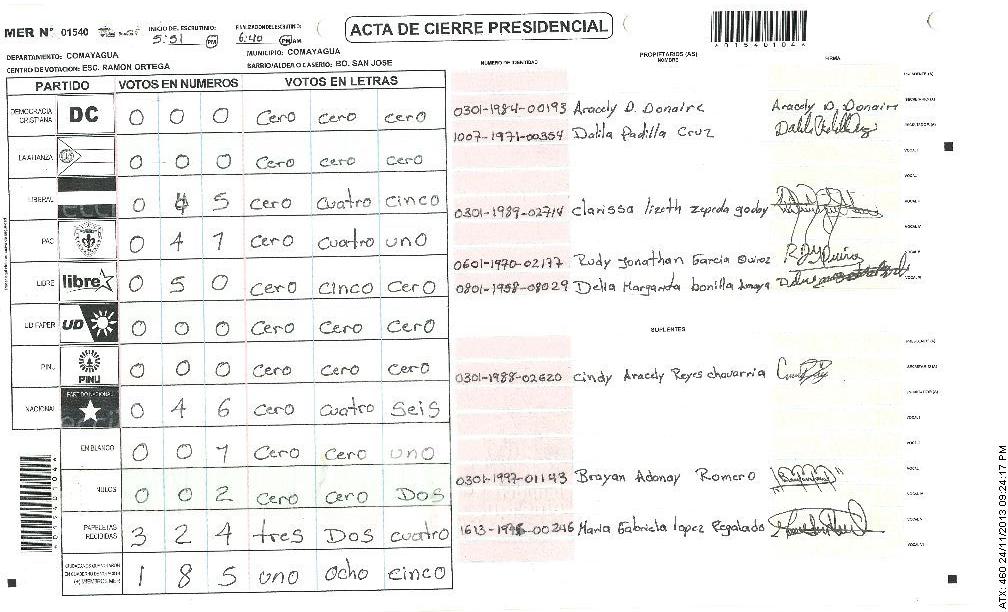 MER Nº 01540
INICIO DE ESCRUTINIO: 5:51 PM
FINALIZACION DEL ESCRUTINIO: 6:40 PM AM
ACTA DE CIERRE PRESIDENCIAL
DEPARTAMENTO: COMAYAGUA
MUNICIPIO: COMAYAGUA
CENTRO DE VOTACION: ESC. RAMON ORTEGA
BARRIO/ALDEA O CASERIO: BO. SAN JOSE
NUMERO DE IDENTIDAD
PROPIETARIOS (AS)
NOMBRE
FIRMA
PARTIDO VOTOS EN NUMEROS VOTOS EN LETRAS
DEMOCRACIA CRISTIANA DC 0 0 0 cero cero cero
LA ALIANZA 0 0 0 cero cero cero
LIBERAL 0 4 5 cero cuatro cinco
PAC 0 4 1 cero cuatro uno
LIBRE libre 0 5 0 cero cinco cero
UD FAPER UD 0 0 0 cero cero cero
PINU PINU 0 0 0 cero cero cero
NACIONAL PARTIDO NACIONAL 0 4 6 cero cuatro seis
EN BLANCO 0 0 1 cero cero uno
NULOS 0 0 2 cero cero Dos
PAPELETAS RECIBIDAS 3 2 4 tres Dos cuatro
1 8 5 uno ocho cinco
0301-1984-00193 Aracely D. Donaire Aracely D. Donaire
1007-1971-00354 Dalila Padilla Cruz
0301-1989-02714 Clarissa lizeth zepeda godoy
0601-1970-02177 Rudy Jonathan Garcia Quiroz
0801-1958-08029 Delia Margarita bonilla
SUPLENTES
0301-1988-02620 Cindy Aracely Reyes chavarria
0301-1997-01143 Brayan Adonay Romero
1613-00246 Maria Gabriela lopez Regalado
ATX: 460 24/11/2013 09:24:17 PM